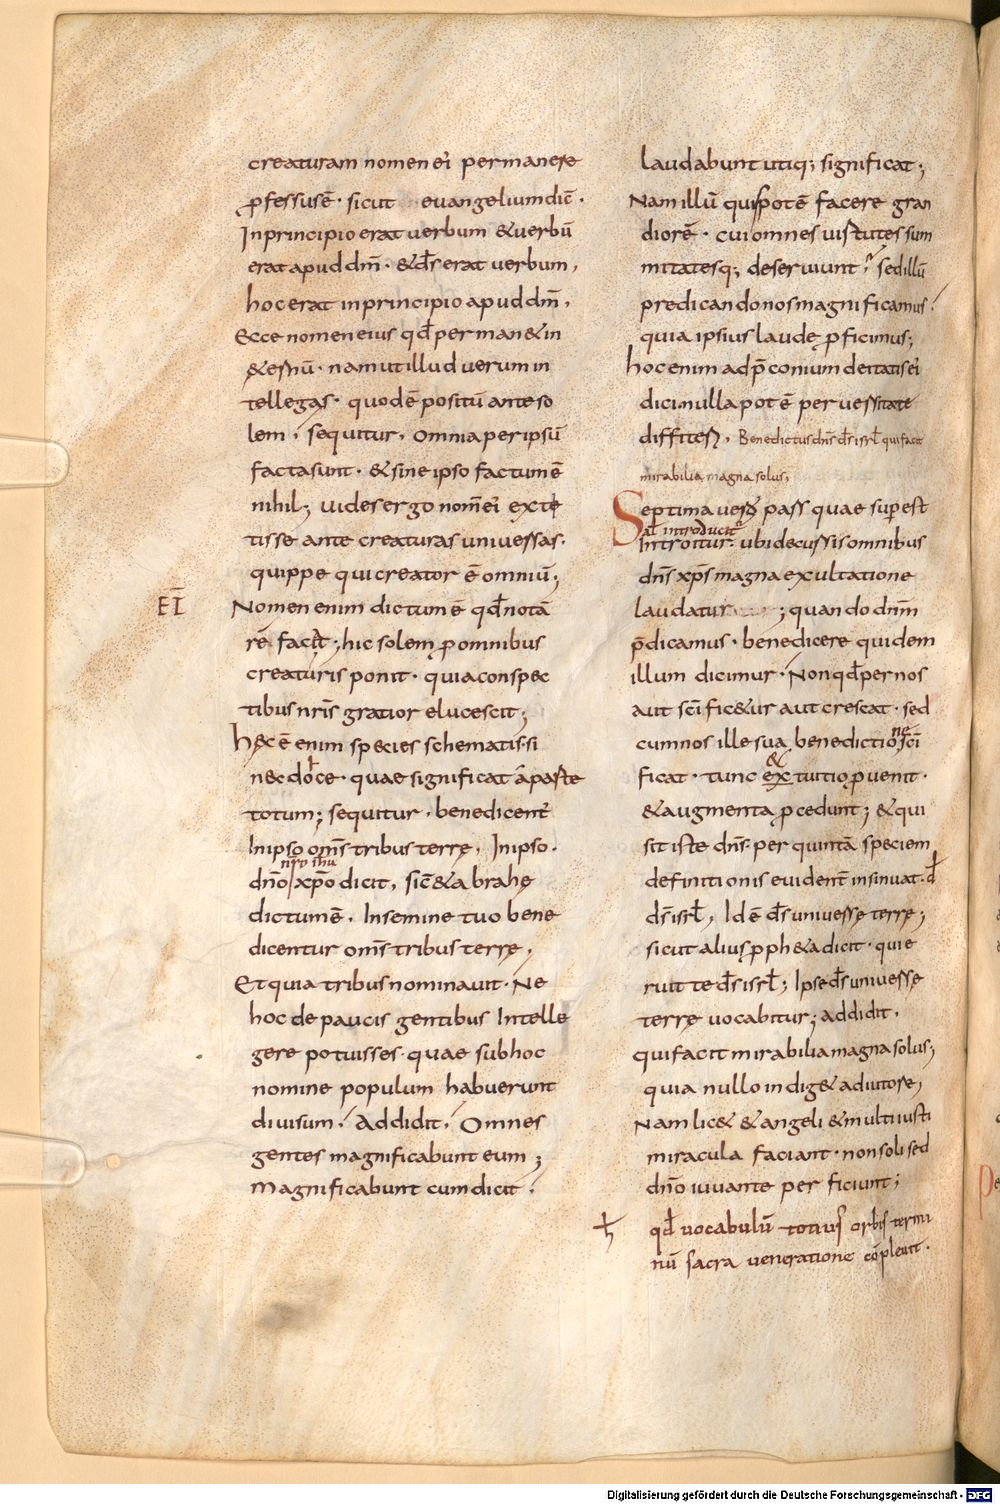 creaturam nomen ei permanere
ꝓfessusē · sicut euangelium dic̄ ·
In principio erat uerbum &uerbū
erat apud dm̄ · &ds̄ erat uerbum,
hoc erat in principio apud dm̄,
Ecce nomen eius qđ perman& in
&ernū · nam ut illud uerum in
tellegas · quod ē positū ante so
lem, sequitur, omnia per ipsū
facta sunt · & sine ipso factum ē
nihil; uides ergo nom̄ ei exte
tisse ante creaturas uniuersas ·
quippe qui creator ē omniū;
EĪ
Nomen enim dictum ē qđ notā
rē facit; hic solem ꝓ omnibus
creaturis ponit · quia conspec
tibus nr̄is gratior elucescit;
Hęc ē enim species schematis si
necdoce · quae significat a parte
totum; sequitur, benedicent̄
In ipso om̄s tribus terrę, In ipso ·
nr̄o ihu
dn̄o xp̄o dicit, sic̄ & abrahę
dictum ē, In semine tuo bene
dicentur om̄s tribus terrę,
Et quia tribus nominauit · Ne
hoc de paucis gentibus Intelle
gere potuisses · quae sub hoc
nomine populum habuerunt
diuisum, Addidit, Omnes
gentes magnificabunt eum;
Magnificabunt cum dicit,
laudabunt utiq; significat;
Nam illū quis potē facere gran
diorē · cui omnes uirtutes sum
mitatesq; deseruiunt, sed illū
predicando nos magnificamus,
quia ipsius laudę ꝓficimus;
hoc enim ad p̄conium deitatis ei
dici nulla pot ē peruersitate
diffiteri, Benedictus dn̄s ds̄ isrł qui facit
mirabilia magna solus,
Septima uersus pass quae superest
ał introducit̄
Introitur · ubi decussis omnibus
dn̄s xp̄s magna exultatione
laudatur; quando dn̄m
p̄dicamus · benedicere quidem
illum dicimur · Non qđ per nos
aut sc̄ific&ur aut crescat · sed
cum nos ille sua benedictione sc̄i
ficat · tunc & ex tuitio ꝓuenit ·
& augmenta ꝓcedunt; & qui
sit iste dn̄s · per quintā speciem
definitionis euident̄ insinuat · đ
ds̄ isrł, Id ē ds̄ uniuersę terrę;
sicut alius ꝓph&a dicit · qui e
ruit te ds̄ isrł; Ipse ds̄ uniuersę
terrę uocabitur; addidit,
qui facit mirabilia magna solus,
quia nullo indig& adiutore,
Nam lic& & angeli & multi iusti
miracula faciant · non soli sed
dn̄o iuuante perficiunt;
ħ qđ uocabulū totius orbis termi
nū sacra ueneratione cōpleuit ·
Digitalisierung gefördert durch die Deutsche Forschungsgemeinschaft - DFG